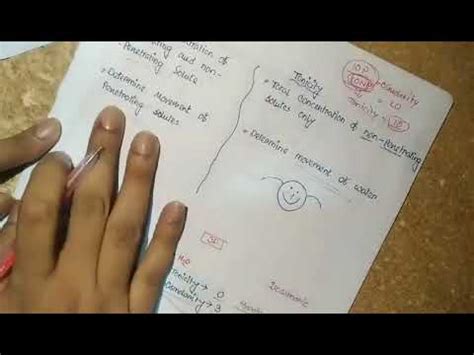 concentration of
penetrating and non-
Penetrating Solute
• Determine movement of
Penetrating solutes
Tonicity
• Total concentration of non-Penetrating
solutes only
• Determine movement of water
10P
10NP
Osmolarity
= 20
Tonicity = 10
H₂O
Tonicity → 0
Osmolarity → 3
Isosmotic